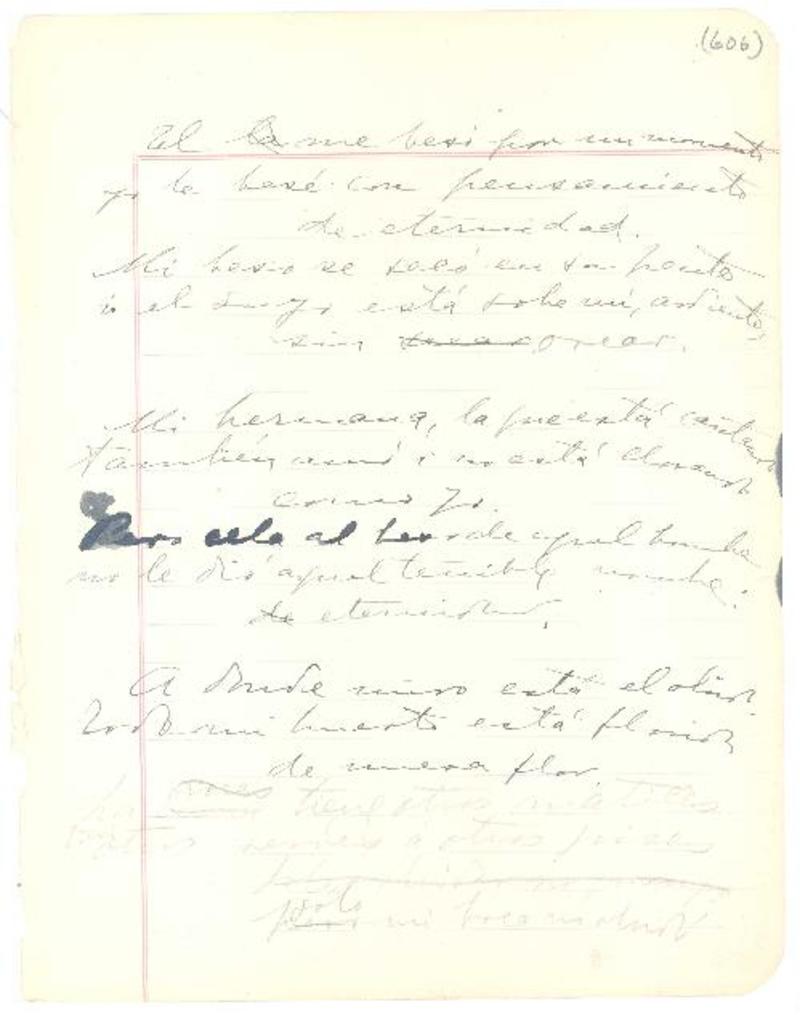 (606)
El me besó por un momento
yo le besé con pensamiento
de eternidad.
Mi beso se secó en su frente
i el suyo está sobre mí, ardiente,
sin orear.
Mi hermana, la que está cantando
también amó i no está clamando
como yo.
Pero ella al beso de aquel hombre
no le dió aquel terrible nombre:
de eternidad.
A donde miro está el olvido.
Todo mi huerto está florido
de nueva flor.
tiene otros matices
otros países
sólo mi boca no olvidó